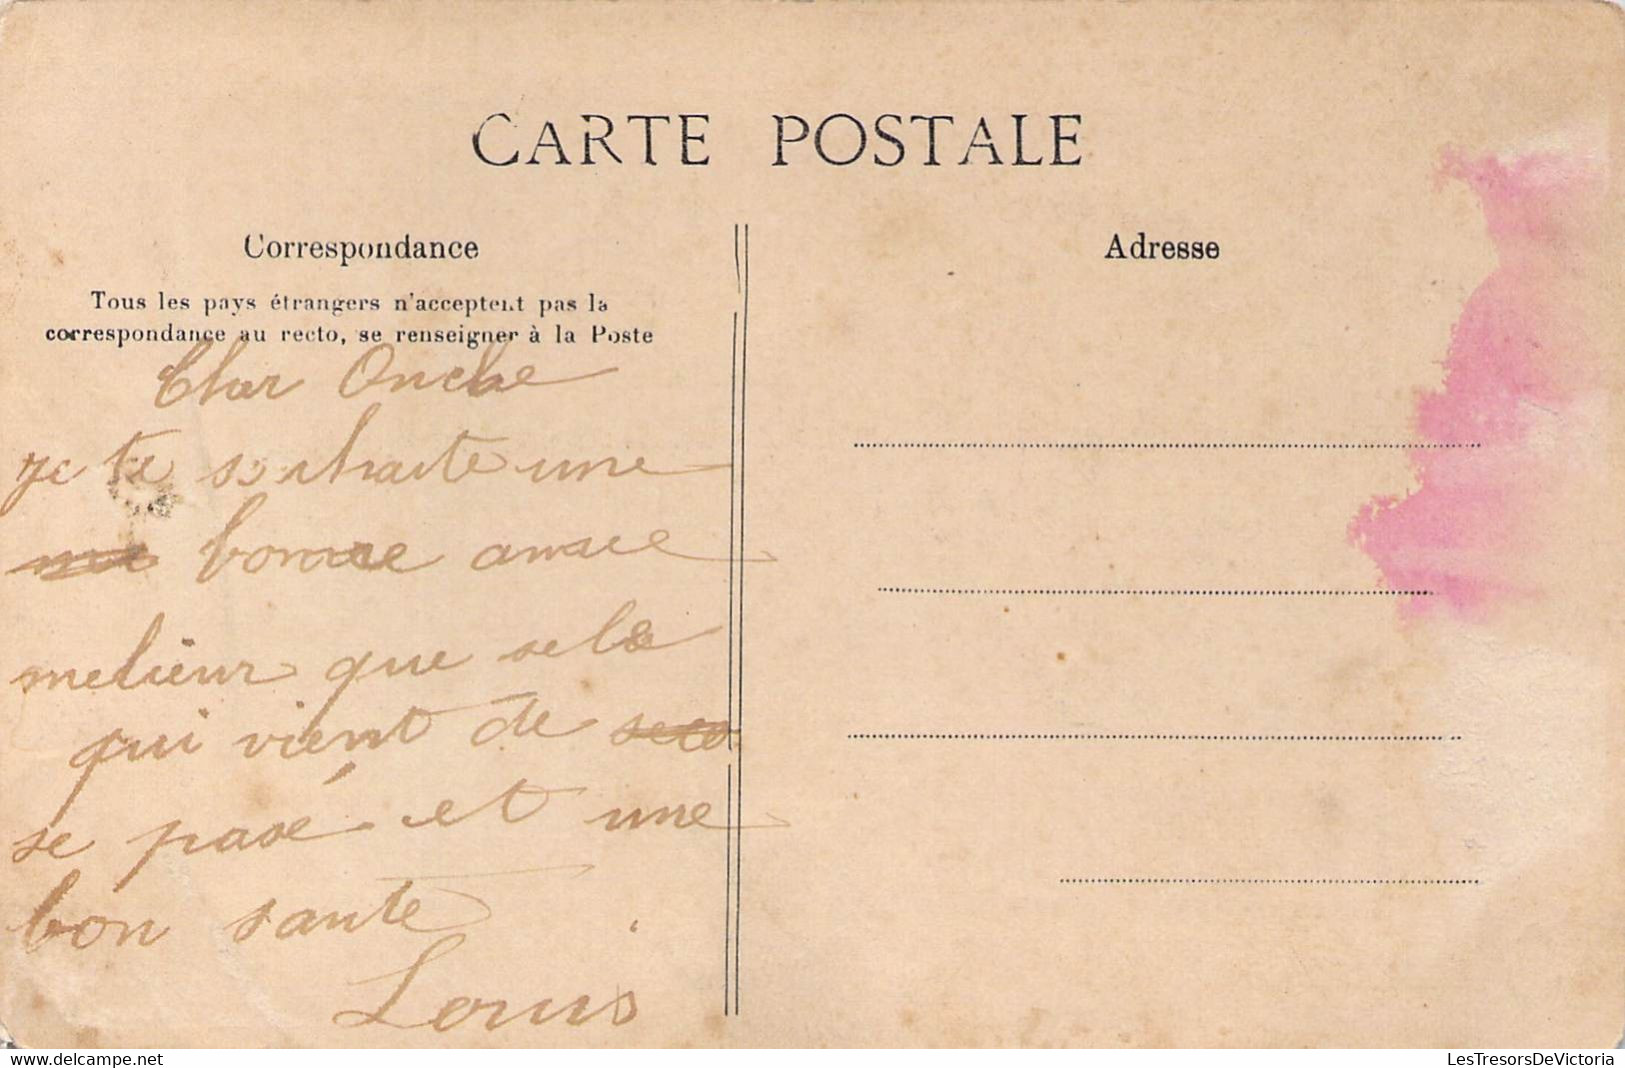 CARTE POSTALE
Correspondance
Tous les pays étrangers n'acceptent pas la
correspondance au recto, se renseigner à la Poste
Cher Oncle
je te souhaite une
bonne anné
melieur que sele
qui vient de
se pasé et une
bon sante
Louis
Adresse
www.delcampe.net
LesTresorsDeVictoria